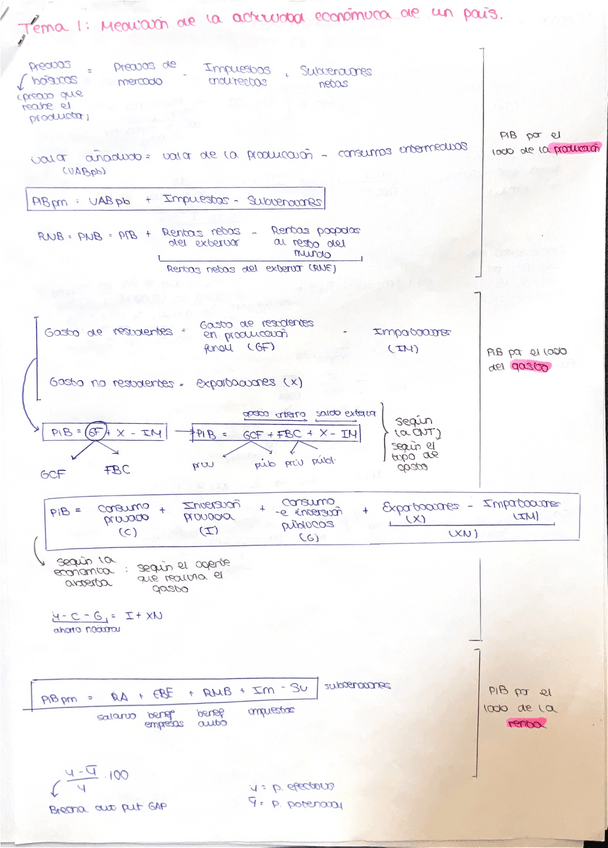 Tema 1: Medición de la actividad económica de un país.
Precios básicos = Precios de mercado - Impuestos indirectos + Subvenciones netas
(precio que recibe el productor)
PIB por el lado de la producción
Valor añadido = valor de la producción - consumos intermedios
(VABpb)
PIBpm = VABpb + Impuestos - Subvenciones
RNB = PNB = PIB + Rentas netas del exterior - Rentas pagadas al resto del mundo
Rentas netas del exterior (RNE)
Gasto de residentes = Gasto de residentes en producción final (GF) - Importaciones (IM)
PIB por el lado del gasto
Gasto no residentes = exportaciones (X)
gasto interno saldo exterior
PIB = GF + X - IM → PIB = GCF + FBC + X - IM
según la CNT, según el tipo de gasto
GCF FBC priv púb priv públ
PIB = Consumo privado (C) + Inversión privada (I) + Consumo e inversión públicos (G) + Exportaciones (X) - Importaciones (IM)
(XN)
según la economía abierta : según el agente que realiza el gasto
y - C - G = I + XN
ahorro nacional
PIBpm = RA + EBE + RMB + Im - Su subvenciones
salarios benef empresas benef auto impuestos
PIB por el lado de la renta
y - ȳ / y · 100
Brecha out put GAP
y = p. efectivo
ȳ = p. potencial